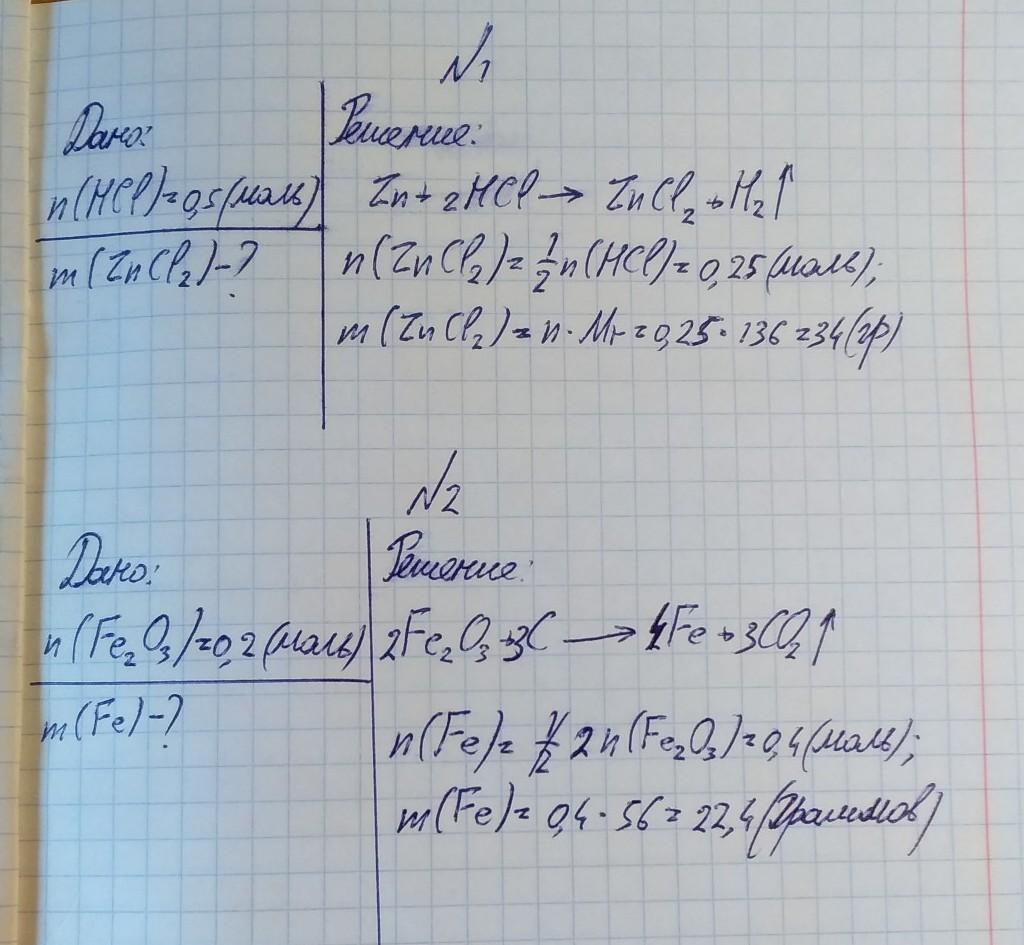 N1
Дано:
n(HCl)=0,5(моль)
m(ZnCl2)-?
Решение:
Zn+2HCl→ZnCl2+H2↑
n(ZnCl2)=1/2n(HCl)=0,25(моль);
m(ZnCl2)=n·Mr=0,25·136=34(гр)
N2
Дано:
n(Fe2O3)=0,2(моль)
m(Fe)-?
Решение:
2Fe2O3+3C→4Fe+3CO2↑
n(Fe)=2n(Fe2O3)=0,4(моль);
m(Fe)=0,4·56=22,4(граммов)